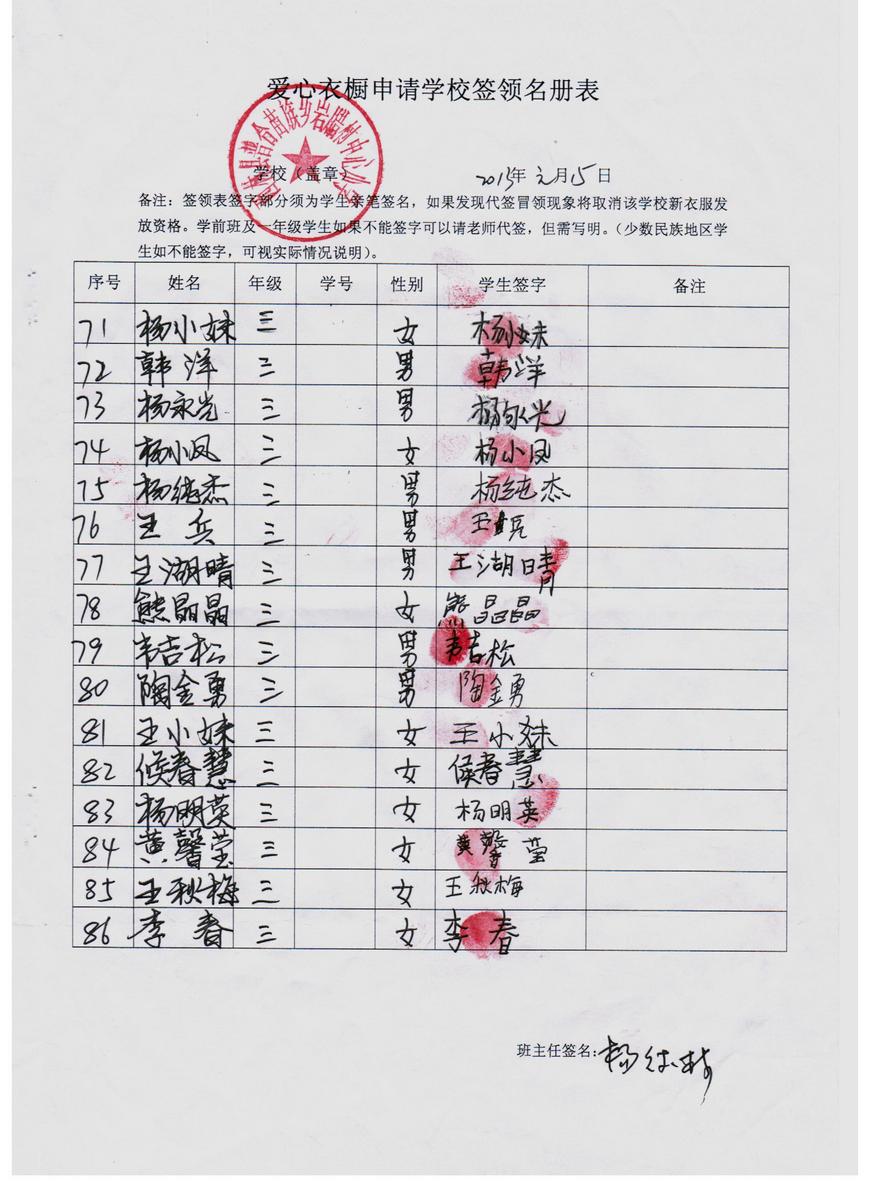 爱心衣橱申请学校签领名册表
普合苗族乡岩腊村中心小学
学校（盖章）
2013年元月15日
备注：签领表签字部分须为学生亲笔签名，如果发现代签冒领现象将取消该学校新衣服发
放资格。学前班及一年级学生如果不能签字可以请老师代签，但需写明。（少数民族地区学
生如不能签字，可视实际情况说明）。
序号 姓名 年级 学号 性别 学生签字 备注
71 杨小妹 三 女 杨小妹
72 韩洋 三 男 韩洋
73 杨永光 三 男 杨永光
74 杨小凤 三 女 杨小凤
75 杨纯杰 三 男 杨纯杰
76 王兵 三 男 王兵
77 王湖晴 三 男 王湖晴
78 熊晶晶 三 女 熊晶晶
79 韦吉松 三 男 韦吉松
80 陶金勇 三 男 陶金勇
81 王小妹 三 女 王小妹
82 侯春慧 三 女 侯春慧
83 杨明英 三 女 杨明英
84 黄馨莹 三 女 黄馨莹
85 王秋梅 三 女 王秋梅
86 李春 三 女 李春
班主任签名：杨